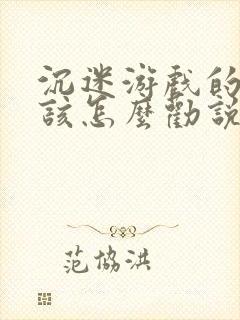 沉迷游戲的
該怎麼勸說
范協洪